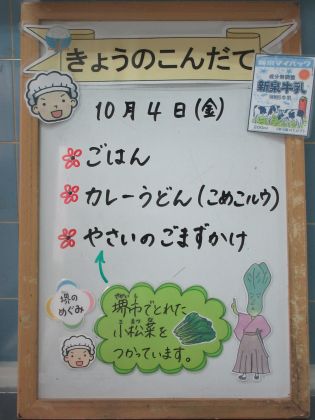 きょうのこんだて
新泉マイパック
成分無調整
新泉牛乳
200ml
10月4日(金)
ごはん
カレーうどん(こめこルウ)
やさいのごまずかけ
堺の
めぐみ
堺市でとれた
小松菜を
つかっています。